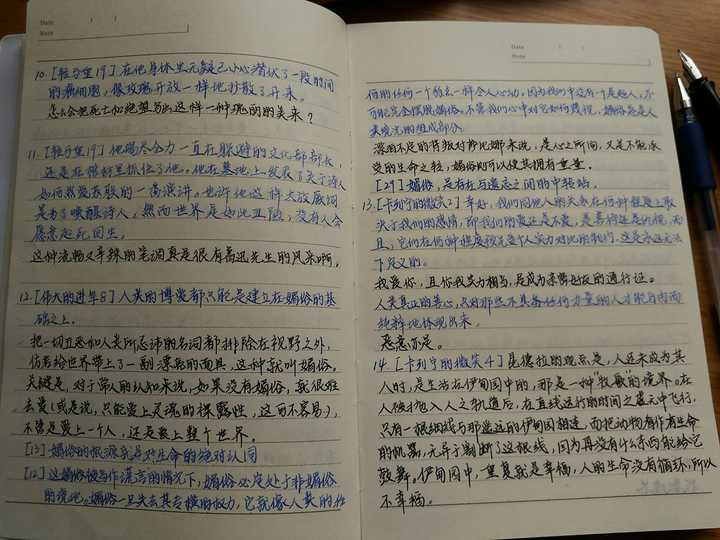 Date
Note
10.【轻与重17】在他身体里无疑已小心潜伏了一段时间
的癌细胞,像玫瑰开放一样地扩散了开来。
怎么会把死亡和绝望写出这样一种瑰丽的美来?
11.【轻与重17】他竭尽全力一直在躲避的文化部部长,
还是在棺材里抓住了他。他在墓地上发表了关于诗人
如何热爱苏联的一篇演讲。也许他这样大放厥词
是为了唤醒诗人,然而世界是如此丑陋,没有人会
愿意起死回生。
这种流畅又辛辣的笔调真是很有高迅先生的风采啊。
12.【伟大的进军8】人类的博爱都只能是建立在媚俗的基
础之上。
把一切丑恶和人类所忌讳的名词都排除在视野之外,
仿若给世界带上了一副漂亮的面具,这种就叫媚俗。
关键是,对于常人的认知来说,如果没有媚俗,就很难
去爱(或是说,只能爱上灵魂的裸露性,这可不容易),
不管是爱上一个人,还是爱上整个世界。
[13] 媚俗的根源就是对生命的绝对认同
[12] 这媚俗被当作谎言的情况下,媚俗必定处于非媚俗
的境地。媚俗一旦失去其专横的权力,它就像人类的任
Date
Note
何的任何一个弱点一样令人心动。因为我们中没有一个是超人,不
可能完全摆脱媚俗。不管我们心中对它如何蔑视,媚俗总是人
类境况的组成部分
深困不足的背叛对萨比娜来说,是人心之所向,又是不能承
受的生命之轻,媚俗则可以使其拥有重量。
[29] 媚俗,是存在与遗忘之间的中转站。
13.【卡列宁的微笑2】幸好,我们同他人的关系在何种程度上取
决于我们的感情,即我们的爱还是不爱,是善待还是仇恨,而
且,它们在何种程度预先受个人实力对比的制约,这是永远无法
下定义的。
我爱你,且你我实力相当,是成为亲密好友的通行证。
人类真正的善心,只对那些不具备任何力量的人才能自由而
纯粹地体现出来。
恶意亦是。
14.【卡列宁的微笑4】昆德拉的观点是,人还未成为其
人时,是生活在伊甸园中的,那是一种“牧歌”的境界。在
人被抛入人之轨道后,在直线运行的时间之虚无中飞行,
只有一根细线与那遥远的伊甸园相连,而把动物看作有生命
的机器,无异于割断了这根线,因为再没有什么东西能给它
鼓舞。伊甸园中,重复就是幸福,人的生命没有循环,所以
不幸福。